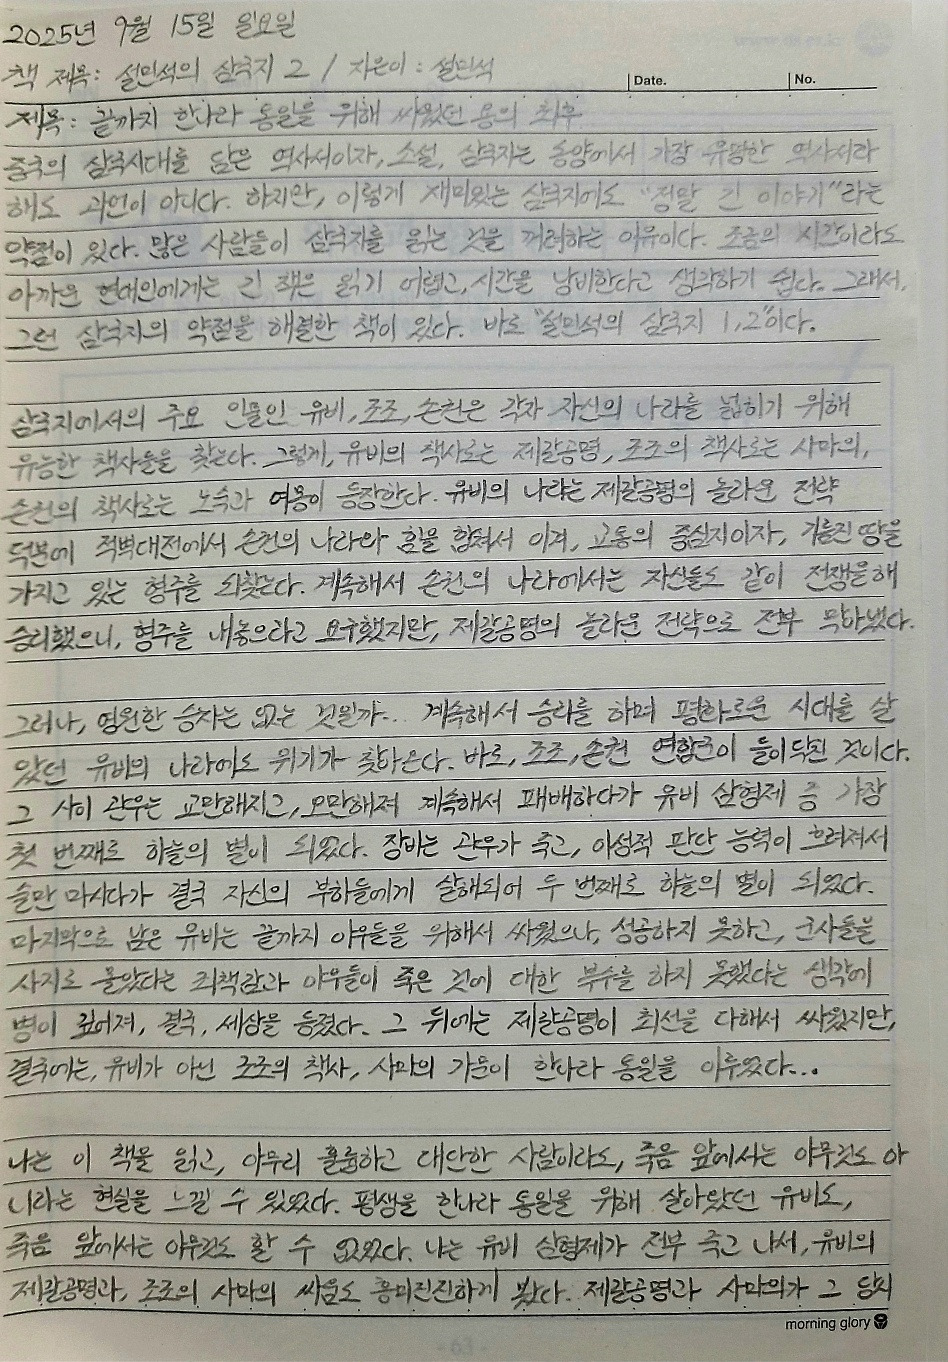 2025년 9월 15일 월요일
책 제목: 설민석의 삼국지 2 / 지은이 : 설민석
Date. No.
제목: 끝까지 한나라 통일을 위해 싸웠던 용의 최후
중국의 삼국시대를 담은 역사서이자, 소설, 삼국지는 동양에서 가장 유명한 역사서라
해도 과언이 아니다. 하지만, 이렇게 재미있는 삼국지에도 "정말 긴 이야기"라는
약점이 있다. 많은 사람들이 삼국지를 읽는 것을 꺼려하는 이유이다. 조금의 시간이라도
아까운 현대인에게는 긴 책은 읽기 어렵고, 시간을 낭비한다고 생각하기 쉽다. 그래서,
그런 삼국지의 약점을 해결한 책이 있다. 바로 "설민석의 삼국지 1,2"이다.
삼국지에서의 주요 인물인 유비, 조조, 손권은 각자 자신의 나라를 넓히기 위해
유능한 책사들을 찾는다. 그렇게, 유비의 책사로는 제갈공명, 조조의 책사로는 사마의,
손권의 책사로는 노숙과 여몽이 등장한다. 유비의 나라는 제갈공명의 놀라운 전략
덕분에 적벽대전에서 손권의 나라와 힘을 합쳐서 이겨, 교통의 중심지이자, 기름진 땅을
가지고 있는 형주를 되찾는다. 계속해서 손권의 나라에서는 자신들도 같이 전쟁을해
승리했으니, 형주를 내놓으라고 요구했지만, 제갈공명의 놀라운 전략으로 전부 막아냈다.
그러나, 영원한 승자는 없는 것일까... 계속해서 승리를 하며 평화로운 시대를 살
았던 유비의 나라에도 위기가 찾아온다. 바로, 조조, 손권 연합군이 들이닥친 것이다.
그 사이 관우는 교만해지고, 오만해져 계속해서 패배하다가 유비 삼형제 중 가장
첫 번째로 하늘의 별이 되었다. 장비는 관우가 죽고, 이성적 판단 능력이 흐려져서
술만 마시다가 결국 자신의 부하들에게 살해되어 두 번째로 하늘의 별이 되었다.
마지막으로 남은 유비는 끝까지 아우들을 위해서 싸웠으나, 성공하지 못하고, 군사들을
사지로 몰았다는 죄책감과 아우들이 죽은 것에 대한 복수를 하지 못했다는 생각에
병이 깊어져, 결국, 세상을 등졌다. 그 뒤에는 제갈공명이 최선을 다해서 싸웠지만,
결국에는, 유비가 아닌 조조의 책사, 사마의 가문이 한나라 통일을 이루었다...
나는 이 책을 읽고, 아무리 훌륭하고 대단한 사람이라도, 죽음 앞에서는 아무것도 아
니라는 현실을 느낄 수 있었다. 평생을 한나라 통일을 위해 살아왔던 유비도,
죽음 앞에서는 아무것도 할 수 없었다. 나는 유비 삼형제가 전부 죽고 나서, 유비의
제갈공명과, 조조의 사마의 싸움도 흥미진진하게 봤다. 제갈공명과 사마의가 그 당시
morning glory